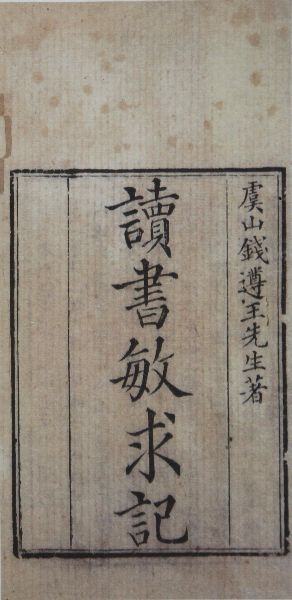 虞山錢遵王先生著
讀書敏求記